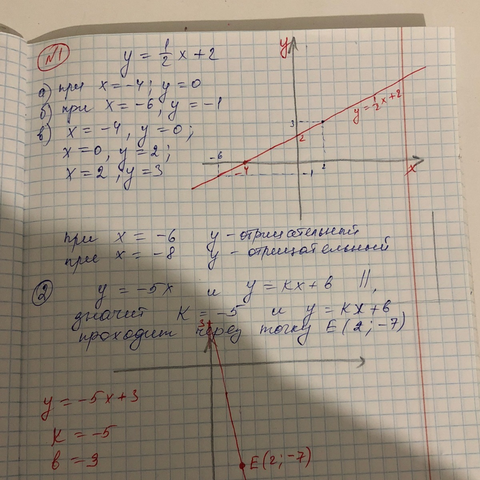 №1
y = 1/2 x + 2
а) при x = -4; y = 0
б) при x = -6, y = -1
в) x = -4, y = 0;
x = 0, y = 2;
x = 2, y = 3
y
3
2
-6
-4
2
-1
x
y = 1/2 x + 2
при x = -6 y - отрицательный
при x = -8 y - отрицательный
2 y = -5x и y = kx + b ||,
значит k = -5 и y = kx + b
проходит через точку E (2; -7)
3
y = -5x + 3
k = -5
b = 3
E (2; -7)